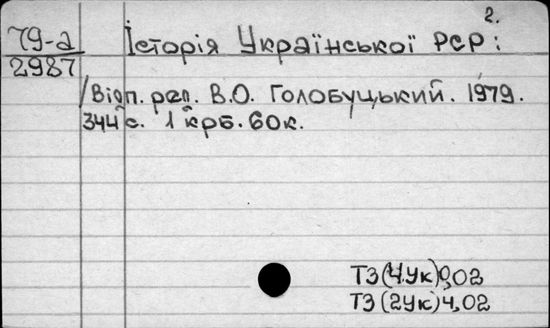 2.
79-а Історія Української РСР:
2987
/Відп. ред. В.О. Голобуцький. 1979.
344 с. 1 крб. 60к.
ТЗ(4Ук)0,02
ТЗ(2Ук)4,02